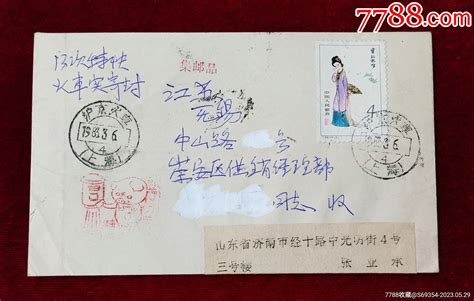 7788.com
13次特快
火车实寄封
集邮品
江苏
无锡
中山路 号
崇安区供销经理部
同志 收
沪京火车
1983.3.6
4
(上海)
中国人民邮政
4
山东省济南市经十路中光明街4号
三号楼 张业承
7788收藏@S69354-2023.05.29